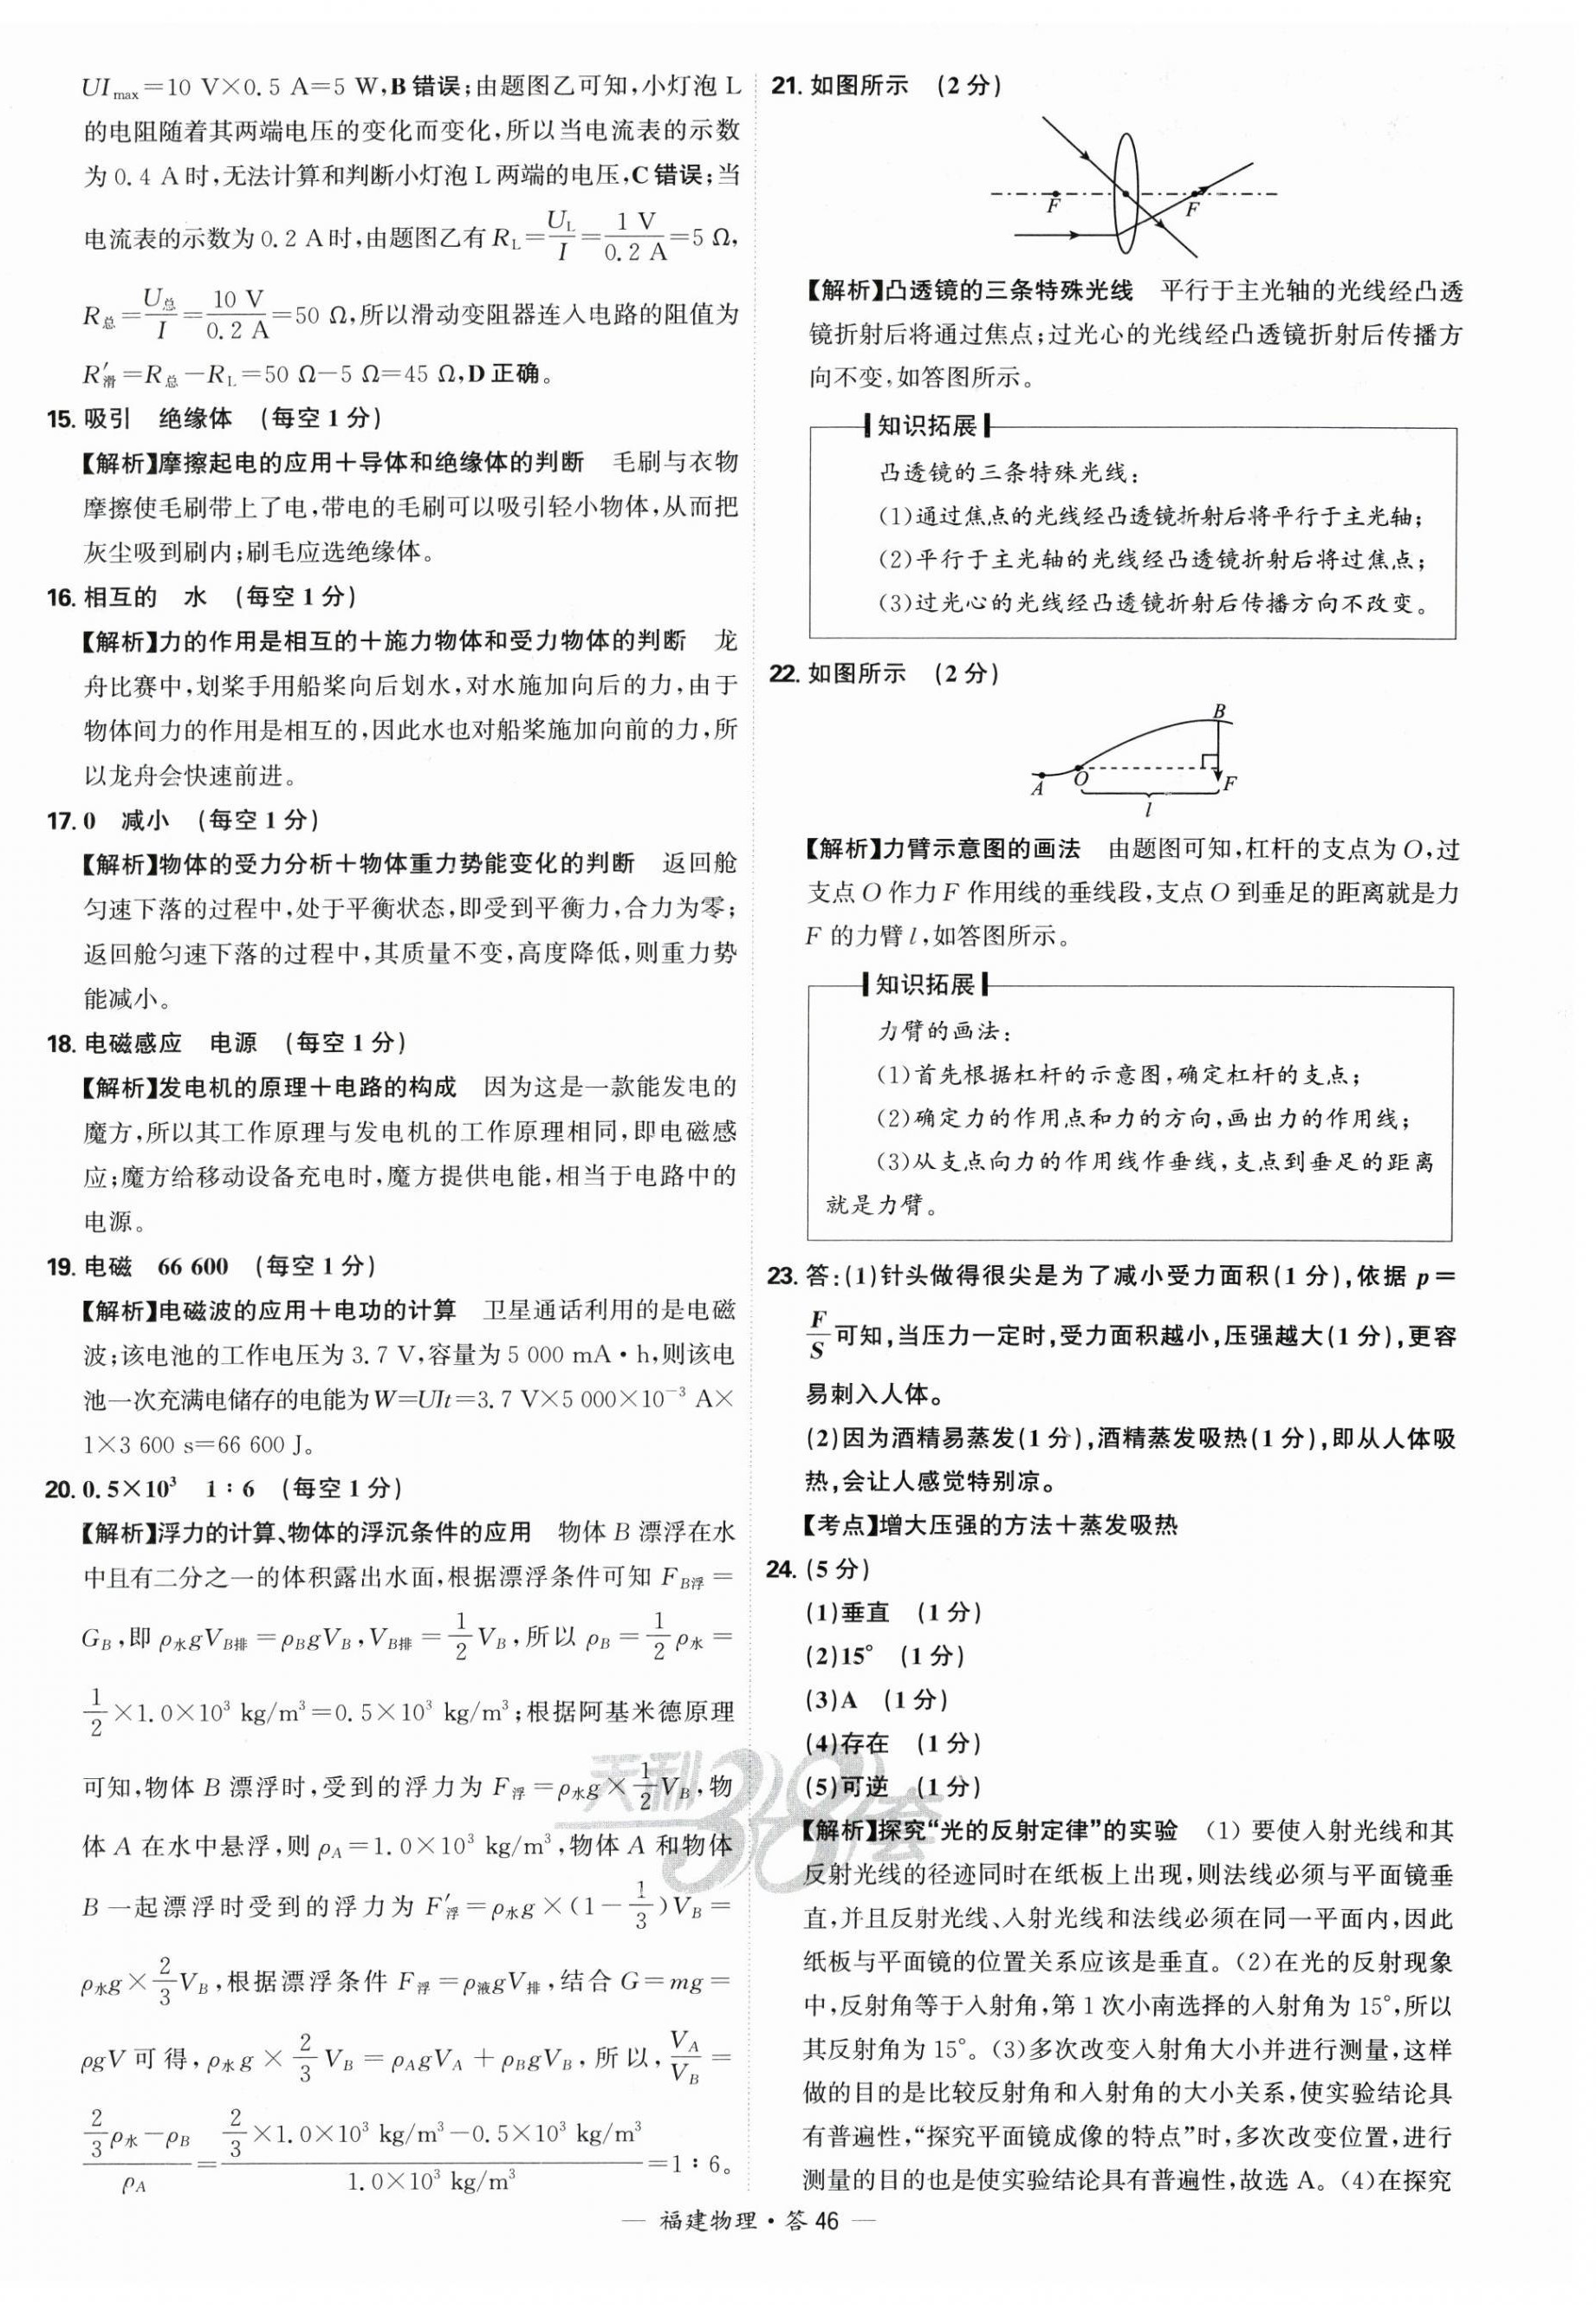 UI max＝10 V×0.5 A＝5 W,B 错误;由题图乙可知,小灯泡 L
的电阻随着其两端电压的变化而变化,所以当电流表的示数
为 0.4 A 时,无法计算和判断小灯泡 L 两端的电压,C 错误;当
电流表的示数为 0.2 A 时,由题图乙有 R_L＝U_L/I＝1 V/0.2 A＝5 Ω,
R总＝U总/I＝10 V/0.2 A＝50 Ω,所以滑动变阻器连入电路的阻值为
R′滑＝R总－R_L＝50 Ω－5 Ω＝45 Ω,D 正确。
15. 吸引　绝缘体　(每空 1 分)
【解析】摩擦起电的应用＋导体和绝缘体的判断　毛刷与衣物
摩擦使毛刷带上了电,带电的毛刷可以吸引轻小物体,从而把
灰尘吸到刷内;刷毛应选绝缘体。
16. 相互的　水　(每空 1 分)
【解析】力的作用是相互的＋施力物体和受力物体的判断　龙
舟比赛中,划桨手用船桨向后划水,对水施加向后的力,由于
物体间力的作用是相互的,因此水也对船桨施加向前的力,所
以龙舟会快速前进。
17. 0　减小　(每空 1 分)
【解析】物体的受力分析＋物体重力势能变化的判断　返回舱
匀速下落的过程中,处于平衡状态,即受到平衡力,合力为零;
返回舱匀速下落的过程中,其质量不变,高度降低,则重力势
能减小。
18. 电磁感应　电源　(每空 1 分)
【解析】发电机的原理＋电路的构成　因为这是一款能发电的
魔方,所以其工作原理与发电机的工作原理相同,即电磁感
应;魔方给移动设备充电时,魔方提供电能,相当于电路中的
电源。
19. 电磁　66 600　(每空 1 分)
【解析】电磁波的应用＋电功的计算　卫星通话利用的是电磁
波;该电池的工作电压为 3.7 V,容量为 5 000 mA·h,则该电
池一次充满电储存的电能为 W＝UIt＝3.7 V×5 000×10⁻³ A×
1×3 600 s＝66 600 J。
20. 0.5×10³　1∶6　(每空 1 分)
【解析】浮力的计算、物体的浮沉条件的应用　物体 B 漂浮在水
中且有二分之一的体积露出水面,根据漂浮条件可知 F_B浮＝
G_B,即 ρ水gV_B排＝ρ_BgV_B,V_B排＝1/2 V_B,所以 ρ_B＝1/2 ρ水＝
1/2×1.0×10³ kg/m³＝0.5×10³ kg/m³;根据阿基米德原理
可知,物体 B 漂浮时,受到的浮力为 F浮＝ρ水g×1/2 V_B,物
体 A 在水中悬浮,则 ρ_A＝1.0×10³ kg/m³,物体 A 和物体
B 一起漂浮时受到的浮力为 F′浮＝ρ水g×(1－1/3)V_B＝
ρ水g×2/3 V_B,根据漂浮条件 F浮＝ρ液gV排,结合 G＝mg＝
ρgV 可得,ρ水g×2/3 V_B＝ρ_AgV_A＋ρ_BgV_B,所以,V_A/V_B＝
(2/3 ρ水－ρ_B)/ρ_A＝(2/3×1.0×10³ kg/m³－0.5×10³ kg/m³)/(1.0×10³ kg/m³)＝1∶6。
21. 如图所示　(2 分)
F
F
【解析】凸透镜的三条特殊光线　平行于主光轴的光线经凸透
镜折射后将通过焦点;过光心的光线经凸透镜折射后传播方
向不变,如答图所示。
知识拓展
凸透镜的三条特殊光线:
(1)通过焦点的光线经凸透镜折射后将平行于主光轴;
(2)平行于主光轴的光线经凸透镜折射后将过焦点;
(3)过光心的光线经凸透镜折射后传播方向不改变。
22. 如图所示　(2 分)
B
A
O
F
l
【解析】力臂示意图的画法　由题图可知,杠杆的支点为 O,过
支点 O 作力 F 作用线的垂线段,支点 O 到垂足的距离就是力
F 的力臂 l,如答图所示。
知识拓展
力臂的画法:
(1)首先根据杠杆的示意图,确定杠杆的支点;
(2)确定力的作用点和力的方向,画出力的作用线;
(3)从支点向力的作用线作垂线,支点到垂足的距离
就是力臂。
23. 答:(1)针头做得很尖是为了减小受力面积(1 分),依据 p＝
F/S 可知,当压力一定时,受力面积越小,压强越大(1 分),更容
易刺入人体。
(2)因为酒精易蒸发(1 分),酒精蒸发吸热(1 分),即从人体吸
热,会让人感觉特别凉。
【考点】增大压强的方法＋蒸发吸热
24. (5 分)
(1)垂直　(1 分)
(2)15°　(1 分)
(3)A　(1 分)
(4)存在　(1 分)
(5)可逆　(1 分)
【解析】探究“光的反射定律”的实验　(1) 要使入射光线和其
反射光线的径迹同时在纸板上出现,则法线必须与平面镜垂
直,并且反射光线、入射光线和法线必须在同一平面内,因此
纸板与平面镜的位置关系应该是垂直。(2)在光的反射现象
中,反射角等于入射角,第 1 次小南选择的入射角为 15°,所以
其反射角为 15°。(3)多次改变入射角大小并进行测量,这样
做的目的是比较反射角和入射角的大小关系,使实验结论具
有普遍性,“探究平面镜成像的特点”时,多次改变位置,进行
测量的目的也是使实验结论具有普遍性,故选 A。(4)在探究
天利38套
— 福建物理·答 46 —